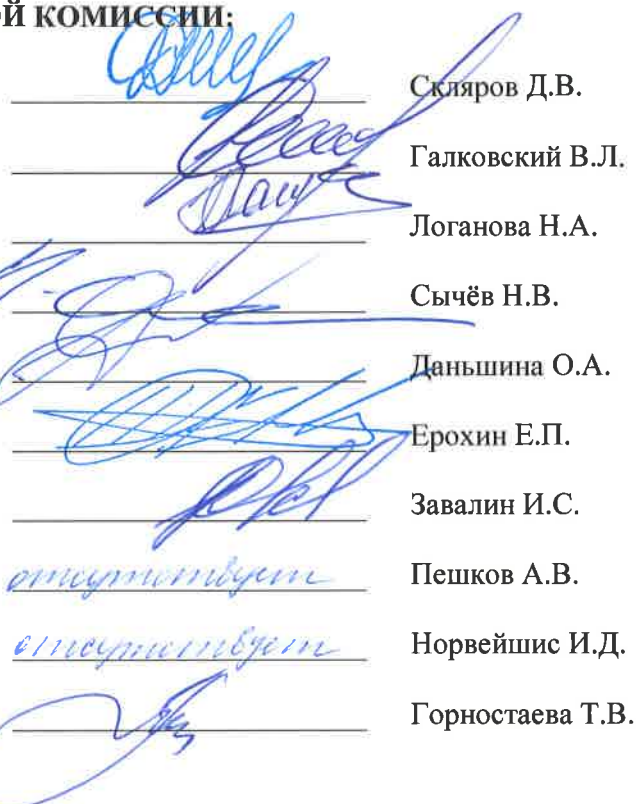 ОЙ КОМИССИИ:
Скляров Д.В.
Галковский В.Л.
Логанова Н.А.
Сычёв Н.В.
Даньшина О.А.
Ерохин Е.П.
Завалин И.С.
отсутствует Пешков А.В.
отсутствует Норвейшис И.Д.
Горностаева Т.В.